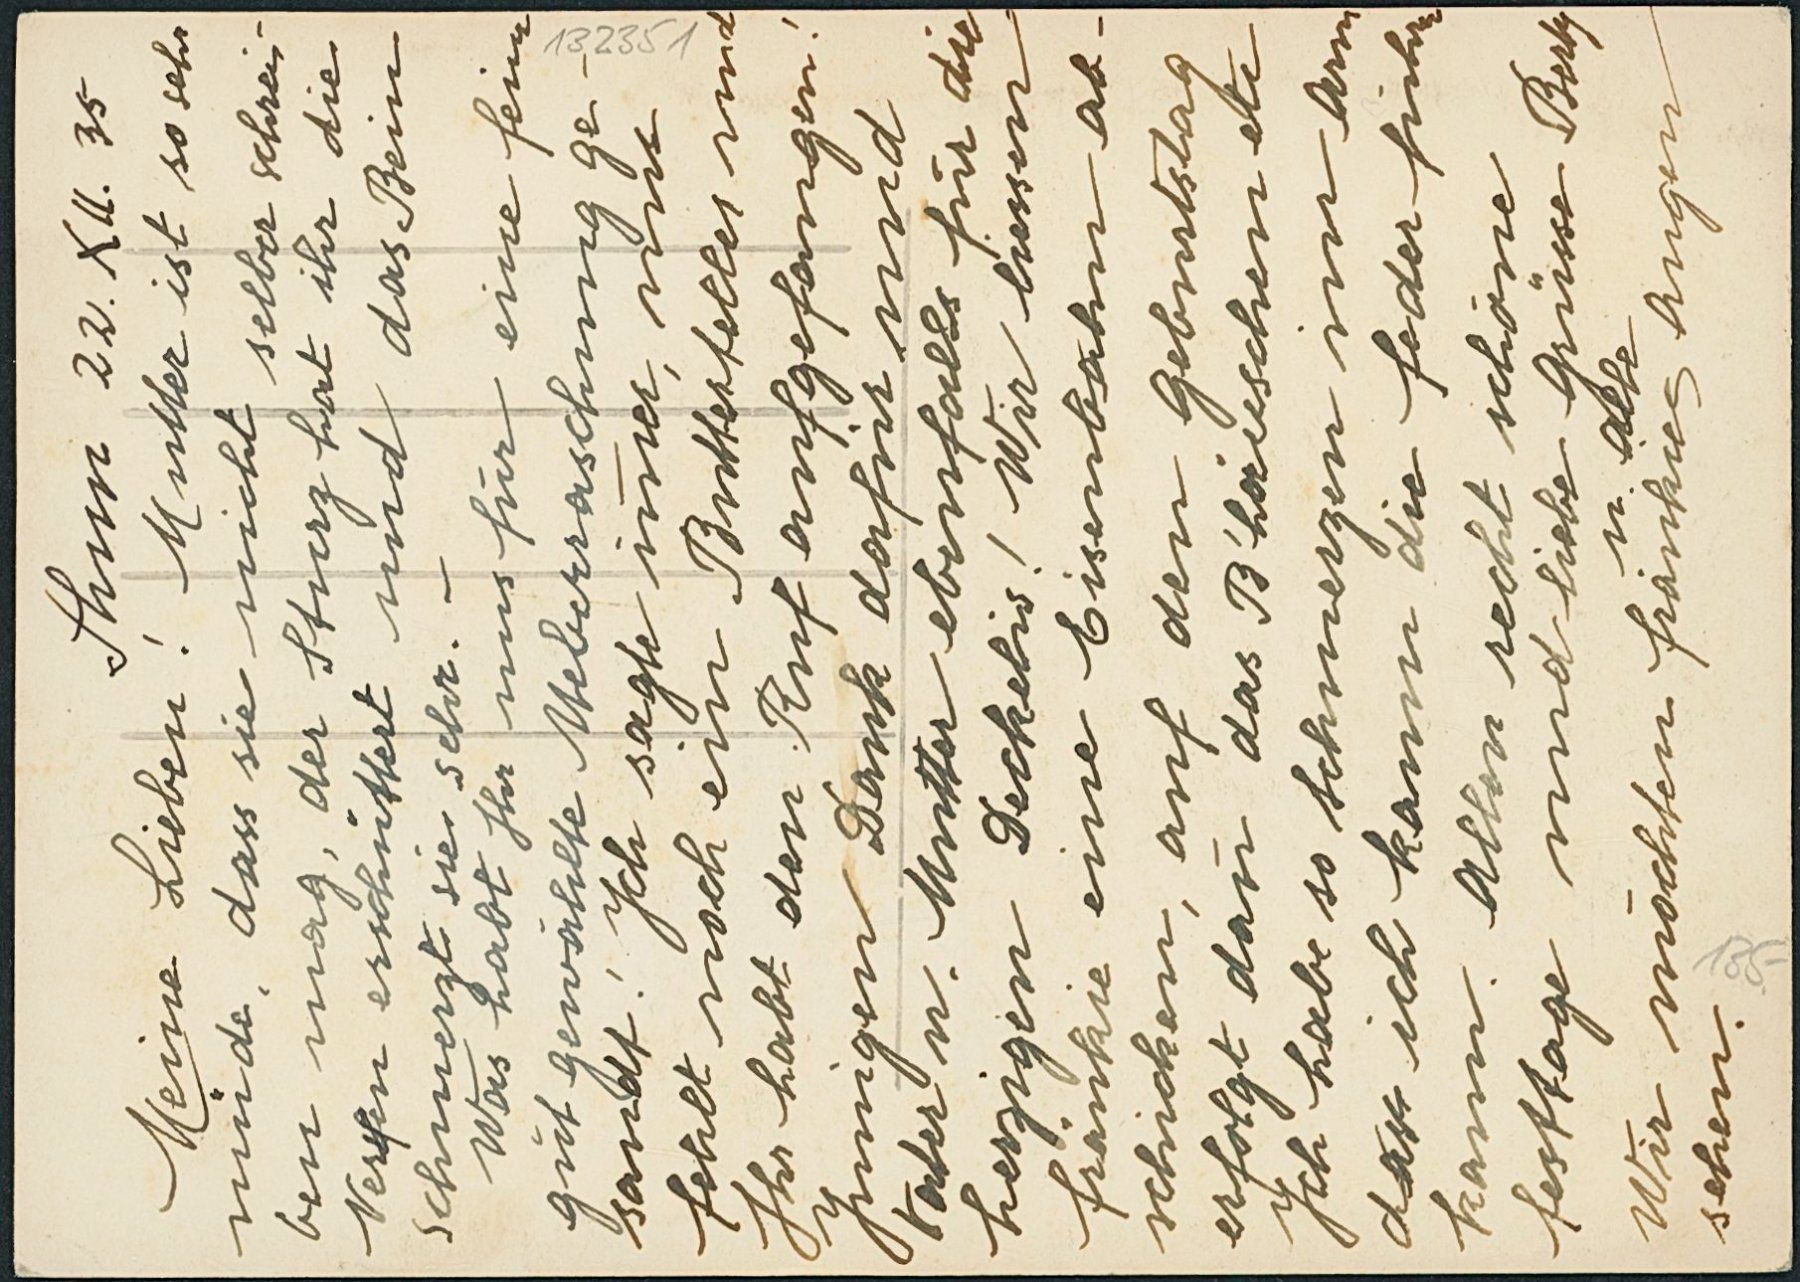 Thun 22. XII. 35
Meine Lieben! Mutter ist so sehr
müde, dass sie nicht selber schrei-
ben mag, der Sturz hat ihr die
Nerven erschüttert und das Bein
schmerzt sie sehr. –
Was habt Ihr uns für eine fein
gut gewählte Ueberraschung ge-
sandt! Ich sagte im̄er, nun
fehlt noch ein Butterteller und
Ihr habt den Ruf aufgefangen!
Innigen Dank dafür und
Vater u. Mutter ebenfalls für die
herzigen Deckelis! Wir liessen
Fränkie eine Eisenbahn ab-
schicken, auf den Geburtstag
erfolgt dan̄ das B'häieschen etc
Ich habe so Schmerzen im Arm
dass ich kaum die Feder führen
kann. Allen recht schöne
Festtage und liebe Grüsse Berty
u. alle
Wir möchten Fränkies Augen
sehen.
132351
135.-